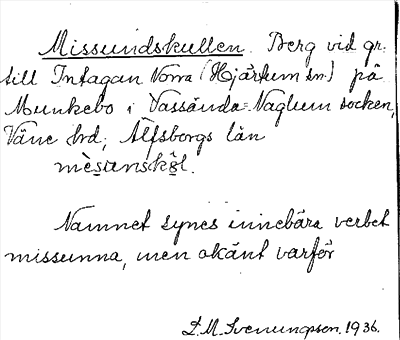 Missundskullen. Berg vid gr.
till Intagan Norra (Hjärtum sn.) på
Munkebo i Vassända-Naglum socken,
Väne hrd; Älfsborgs län
mèsunskôl.
Namnet synes innebära verbet
missunna, men okänt varför
S.M. Svenungsson. 1936.